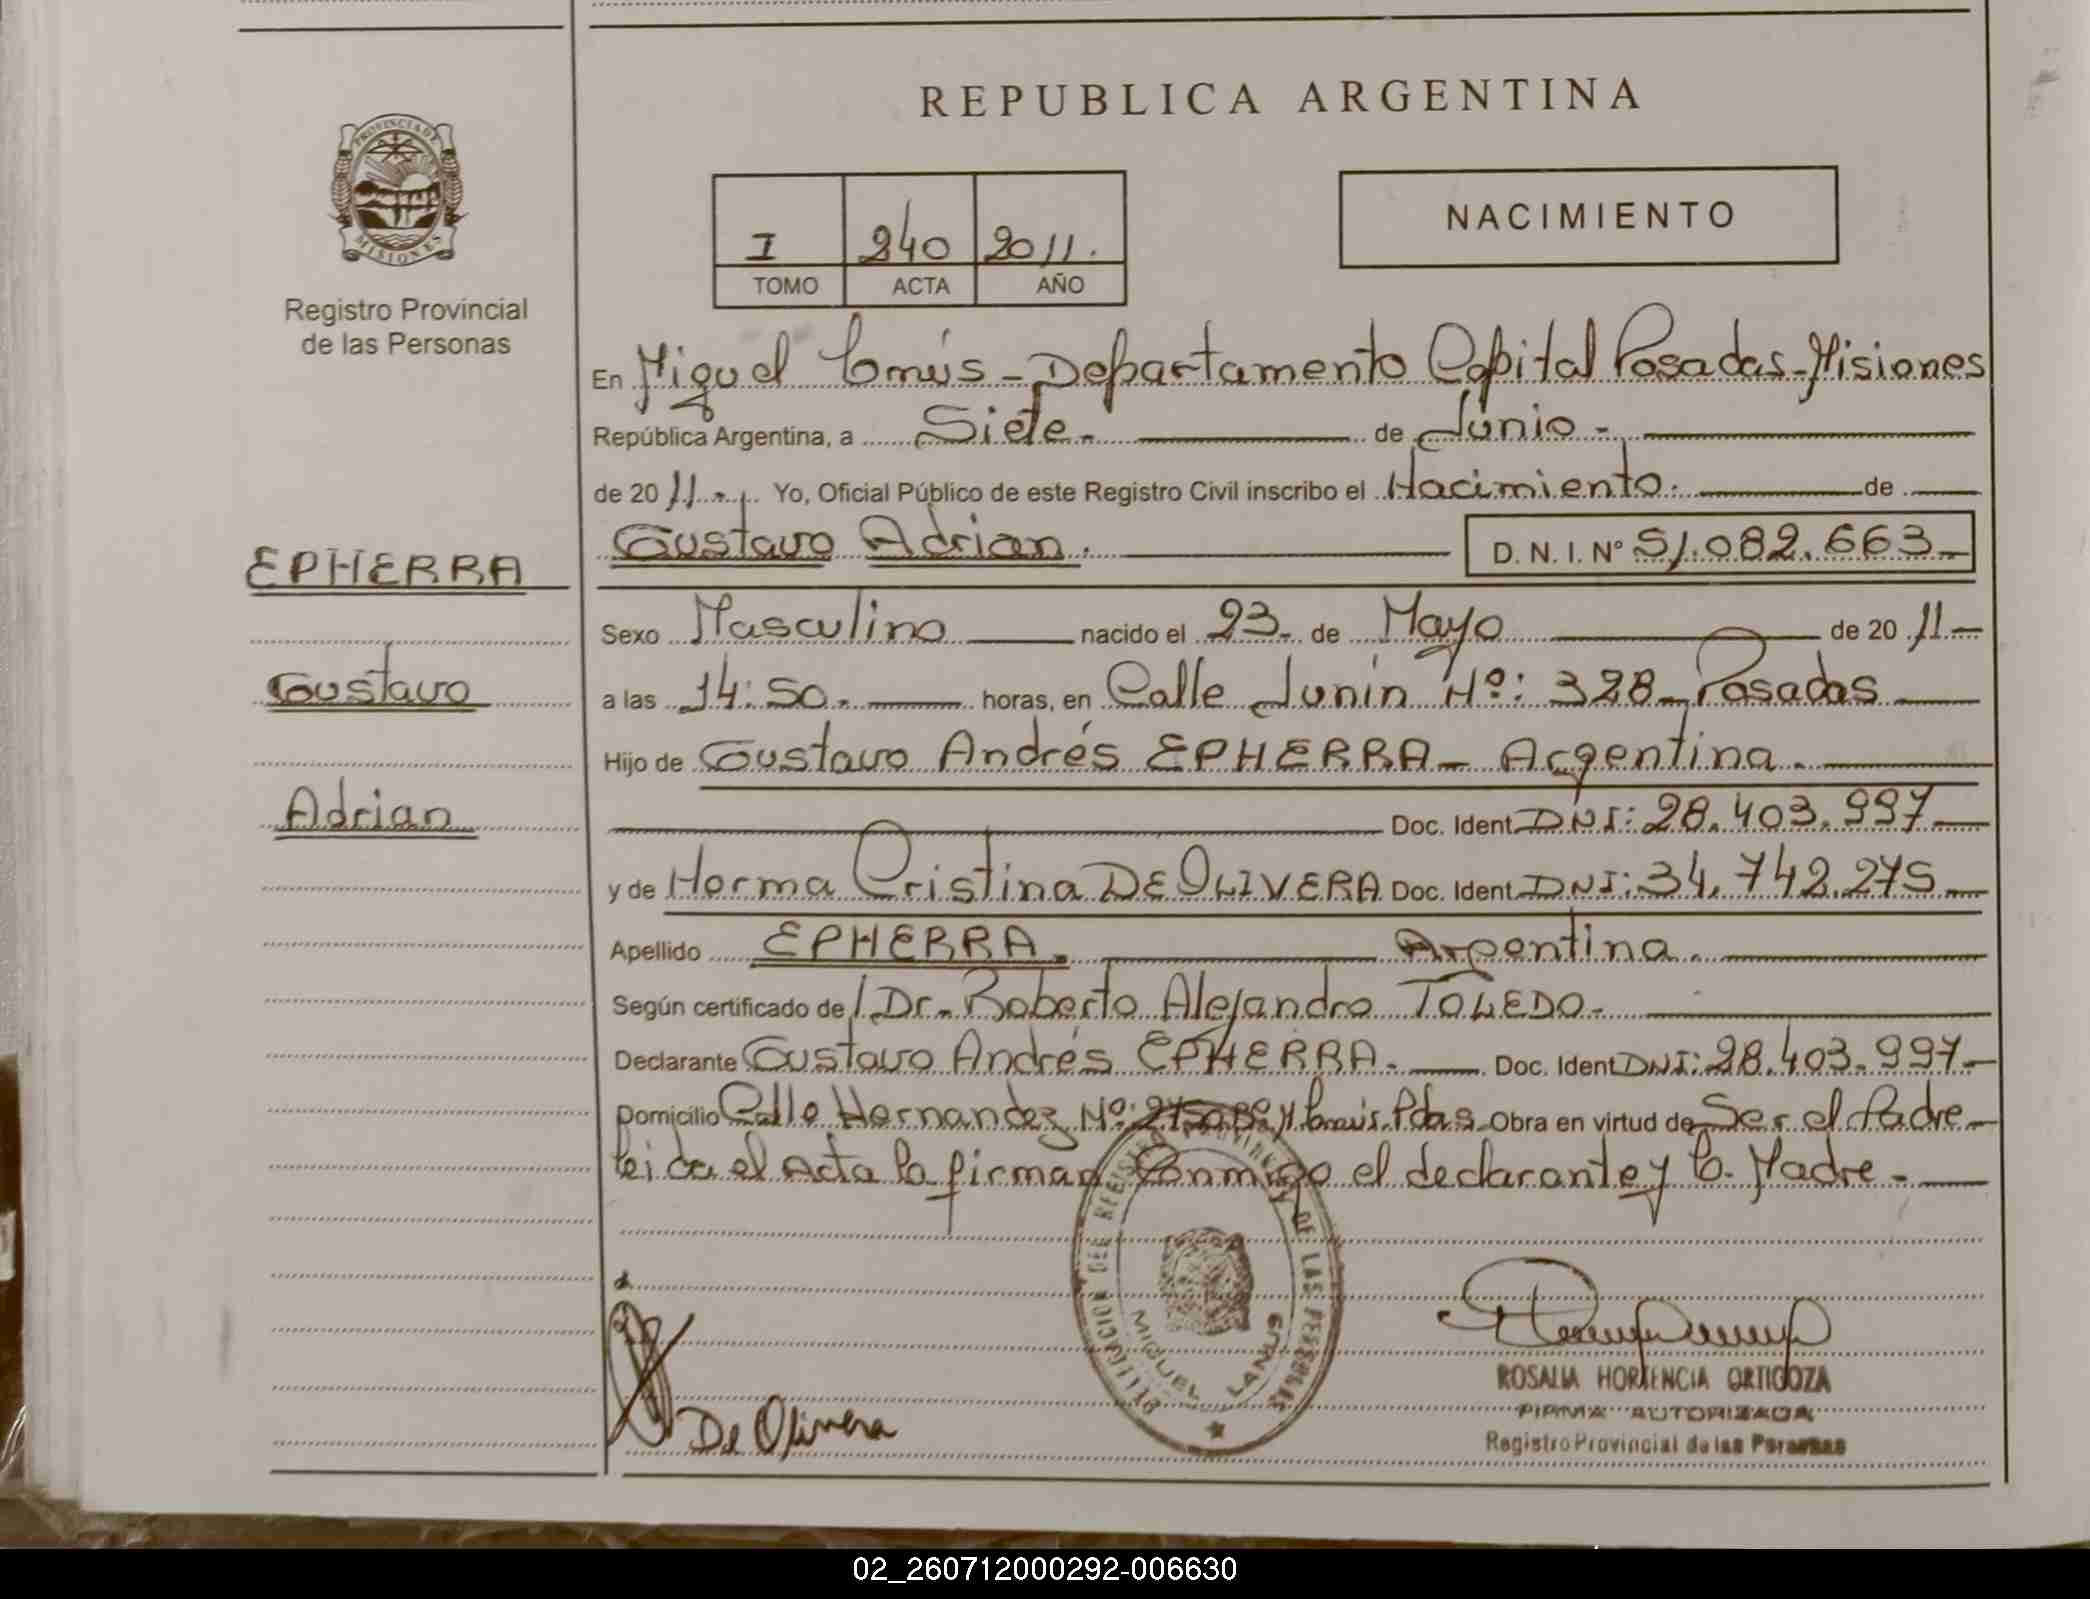 REPUBLICA ARGENTINA
PROVINCIA DE
MISIONES
Registro Provincial
de las Personas
I 240 2011.
TOMO ACTA AÑO
NACIMIENTO
En Miguel Lanús - Departamento Capital Posadas - Misiones
República Argentina, a Siete - de Junio -
de 2011 - Yo, Oficial Público de este Registro Civil inscribo el Nacimiento. de
Gustavo Adrian. D. N. I. Nº 51.082.663 -
EPHERRA
Gustavo
Adrian
Sexo Masculino nacido el 23 - de Mayo de 2011 -
a las 14:50. horas, en Calle Junín Nº: 328 - Posadas
Hijo de Gustavo Andrés EPHERRA - Argentina.
Doc. Ident DNI: 28.403.997
y de Norma Cristina DE OLIVERA Doc. Ident DNI: 34.742.275
Apellido EPHERRA. Argentina.
Según certificado de / Dr. Roberto Alejandro TOLEDO -
Declarante Gustavo Andrés EPHERRA - Doc. Ident DNI: 28.403.997 -
Domicilio Calle Hernandez Nº: Lanús. Pdas - Obra en virtud de Ser el Padre -
leida el Acta la firman Conmigo el declarante y la Madre -
DELEGACION DEL REGISTRO PROVINCIAL DE LAS PERSONAS
MIGUEL LANUS
De Olivera
ROSALIA HORTENCIA ORTIGOZA
FIRMA AUTORIZADA
Registro Provincial de las Personas
02_260712000292-006630